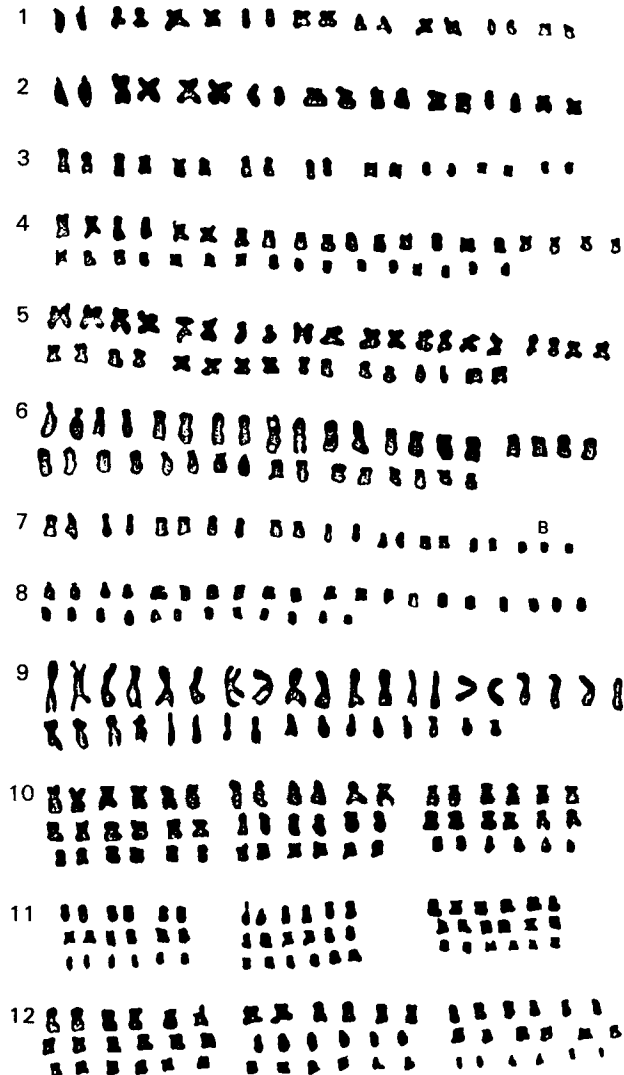 1
2
3
4
5
6
7
B
8
9
10
11
12